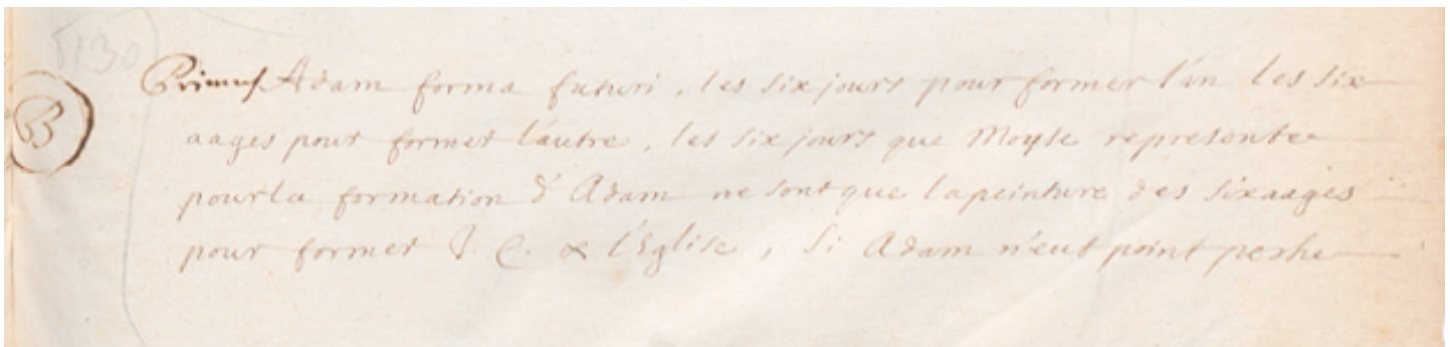 5130
B
Primus Adam forma futuri, les six jours pour former l'un les six
aages pour former l'autre, les six jours que Moyse represente
pour la formation d'Adam ne sont que la peinture des six aages
pour former J. C. & l'Eglise, Si Adam n'eut point peche